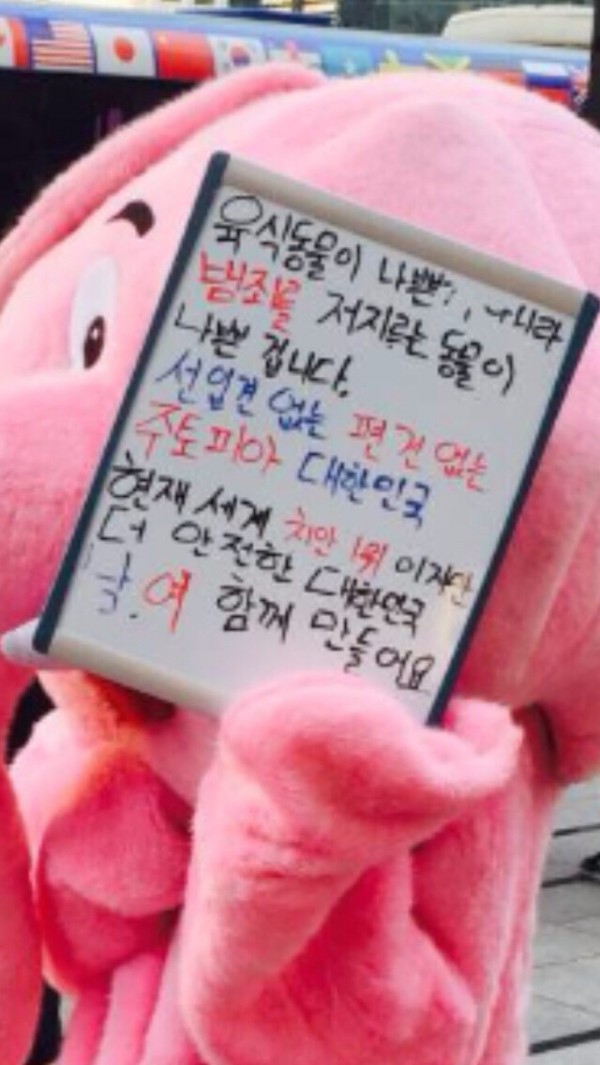 육식동물이 나쁜게 아니라
범죄를 저지르는 동물이
나쁜 겁니다.
선입견 없는 편견 없는
주토피아 대한민국
현재 세계 치안 1위 이지만
더 안전한 대한민국
남.여 함께 만들어요